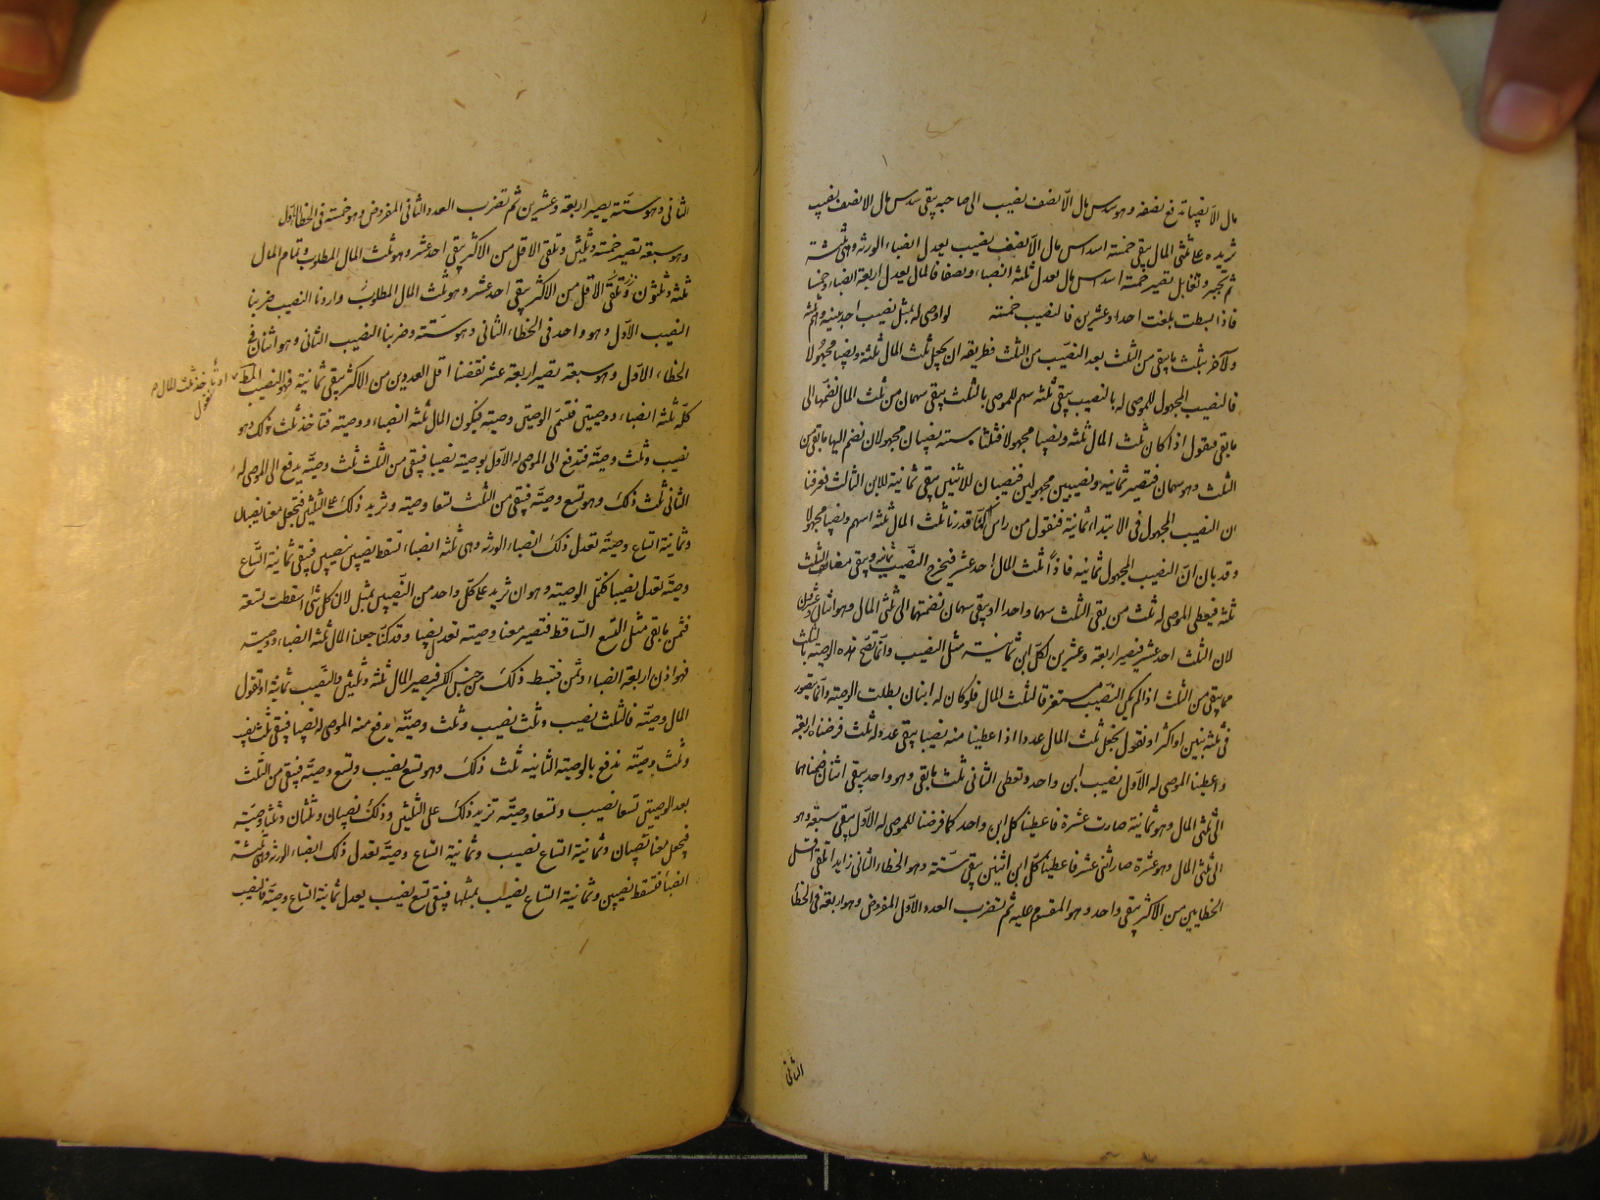 مال الا نصيبا ندفع نصفه وهو سدس مال الا نصف نصيب الى صاحبه يبقى سدس مال الا نصف نصيب
نزيده على ثلثى المال يبقى خمسة اسداس مال الا نصف نصيب يعدل انصباء الورثه وهى ثلثة
ثم تجبر وتقابل تصير خمسة اسداس مال يعدل ثلثة انصباء ونصفا فالمال يعدل اربعة انصباء وخمسا
فاذا بسطت بلغت احدا وعشرين فالنصيب خمسة لو اوصى له بمثل نصيب احد بنيه وهم ثلثة
ولآخر بثلث ما يبقى من الثلث بعد النصيب من الثلث فطريقه ان يجعل ثلث المال ثلثة ونصيبا مجهولا
فالنصيب المجهول للموصى له بالنصيب يبقى ثلثة سهم للموصى بالثلث يبقى سهمان من ثلث المال نضمها الى
ما بقى فيقول اذا كان ثلث المال ثلثة ونصيبا مجهولا فثلثاه ستة ونصيبان مجهولان نضم اليها ما بقى من
الثلث وهو سهمان فتصير ثمانية ونصيبين مجهولين فنصيبان للاثنين يبقى ثمانية للابن الثالث فعرفنا
ان النصيب المجهول فى الابتداء ثمانية فنقول من راس كنا قدرنا ثلث المال ثلثة اسهم ونصيبا مجهولا
وقد بان ان النصيب المجهول ثمانيه فاذاً ثلث المال احد عشر فنخرج النصيب ثمانيه ويبقى معنا من الثلث
ثلثة فيعطى الموصى له ثلث من بقى الثلث سهما واحدا ويبقى سهمان نضمتها الى ثلثى المال وهو اثنان وعشرون
لان الثلث احد عشر فتصير اربعة وعشرين لكل ابن ثمانية مثل النصيب وانما تصح هذه الوصية بالثلث
مما يبقى من الثلث اذا لم يكن النصيب مستغرقا لثلث المال فلو كان له ابنان بطلت الوصية وانما يتصور
فى ثلثة بنين او اكثر او نقول نجعل ثلث المال عددا اذا اعطينا منه نصيبا يبقى عدد له ثلث فرضناه اربعة
واعطينا الموصى له الاول نصيب ابن واحد وتعطى الثانى ثلث ما بقى وهو واحد يبقى اثنان ضممناهما
الى ثلثى المال وهو ثمانية صارت عشرة فاعطينا كل ابن واحد كما فرضنا للموصى له الاول يبقى سبعة وهو
الى ثلثى المال وهو عشرة صار اثنى عشر فاعطينا كل ابن اثنين يبقى ستة وهو الخطاء الثانى زايدا تلقى اقل
الخطايين من الاكثر يبقى واحد وهو المقسوم عليه ثم تضرب العدد الاول المفروض وهو اربعة فى الخطأ
الثانى
الثانى وهو ستة يصير اربعة وعشرين ثم تضرب العدد الثانى المفروض وهو خمسة فى الخطا الاول
وهو سبعة تصير خمسة وثلثين وتلقى الاقل من الاكثر يبقى احد عشر وهو ثلث المال المطلوب وتمام المال
ثلثة وثلثون وتلقى الاقل من الاكثر يبقى احد عشر وهو ثلث المال المطلوب واردنا النصيب ضربنا
النصيب الاول وهو واحد فى الخطاء الثانى وهو ستة وضربنا النصيب الثانى وهو اثنان فى
الخطاء الاول وهو سبعة تصير اربعة عشر نقصنا اقل العددين من الاكثر يبقى ثمانية فهو النصيب المط
او ثم خذ ثلث المال م
نقول
كله ثلثة انصباء ووصيتين فنسمى الوصيتين وصية فيكون المال ثلثة انصباء ووصية فتاخذ ثلث ذلك وهو
نصيب وثلث وصية فندفع الى الموصى له الاول بوصيته نصيبا فيبقى من الثلث ثلث وصية يدفع الى الموصى له
الثانى ثلث ذلك وهو تسع وصية فيبقى من الثلث تسعا وصية ونزيد ذلك على الثلثين فتجعل معنا نصيبان
وثمانية اتساع وصية تعدل ذلك انصباء الورثه وهى ثلثة انصباء تسقط نصيبين بنصيبين فيبقى ثمانية اتساع
وصية تعدل نصيبا فكمل الوصية وهو ان نزيد على كل واحد من النصيبين بمثل لان كل شئ اسقطت تسعة
فثمن ما بقى مثل التسع الساقط فتصير معنا وصية تعدل نصيبا وقد كنا جعلنا المال ثلثة انصباء ووصية
فهو اذن اربعة انصباء وثمن فنبسط ذلك من جنس الكسر فيصير المال ثلثة وثلثين والنصيب ثمانية او نقول
المال وصية فالثلث نصيب وثلث نصيب وثلث وصية يدفع منه الموصى له نصيبا فيبقى ثلث نصيب
وثلث وصية ندفع بالوصية الثانيه ثلث ذلك وهو تسع نصيب وتسع وصية فيبقى من الثلث
بعد الوصيتين تسعا نصيب وتسعا وصية تزيد ذلك على الثلثين وذلك نصيبان وثلثان وثلثا وصية
فيجعل معنا نصيبان وثمانية اتساع نصيب وثمانية اتساع وصية تعدل ذلك انصباء الورثه وهى ثلثة
انصباء فتسقط نصيبين وثمانية اتساع نصيب بمثلها فيبقى تسع نصيب يعدل ثمانية اتساع وصية فالنصيب